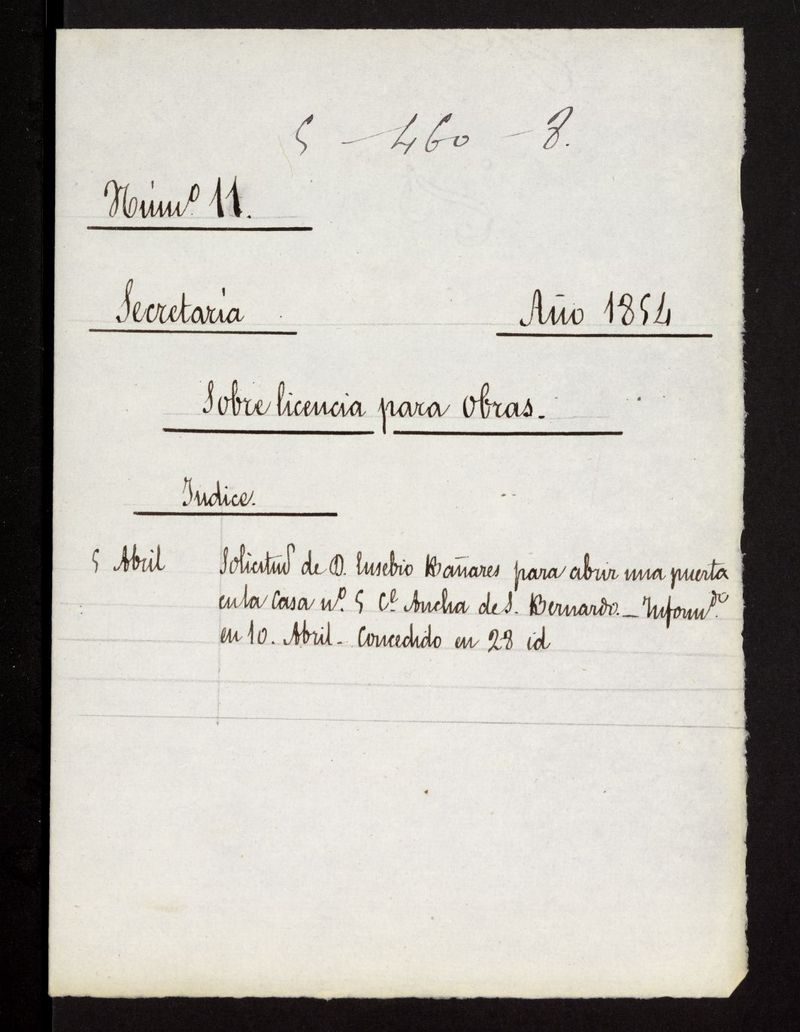 5 - 460 - 8.
Núm.º 11.
Secretaría
Año 1854
Sobre licencia para obras.
Indice.
5 Abril Solicitud de D. Eusebio Bañares para abrir una puerta
en la Casa nº. 5 Cº. Ancha de S. Bernardo. _ Inform.do
en 10. Abril - Concedido en 28 id